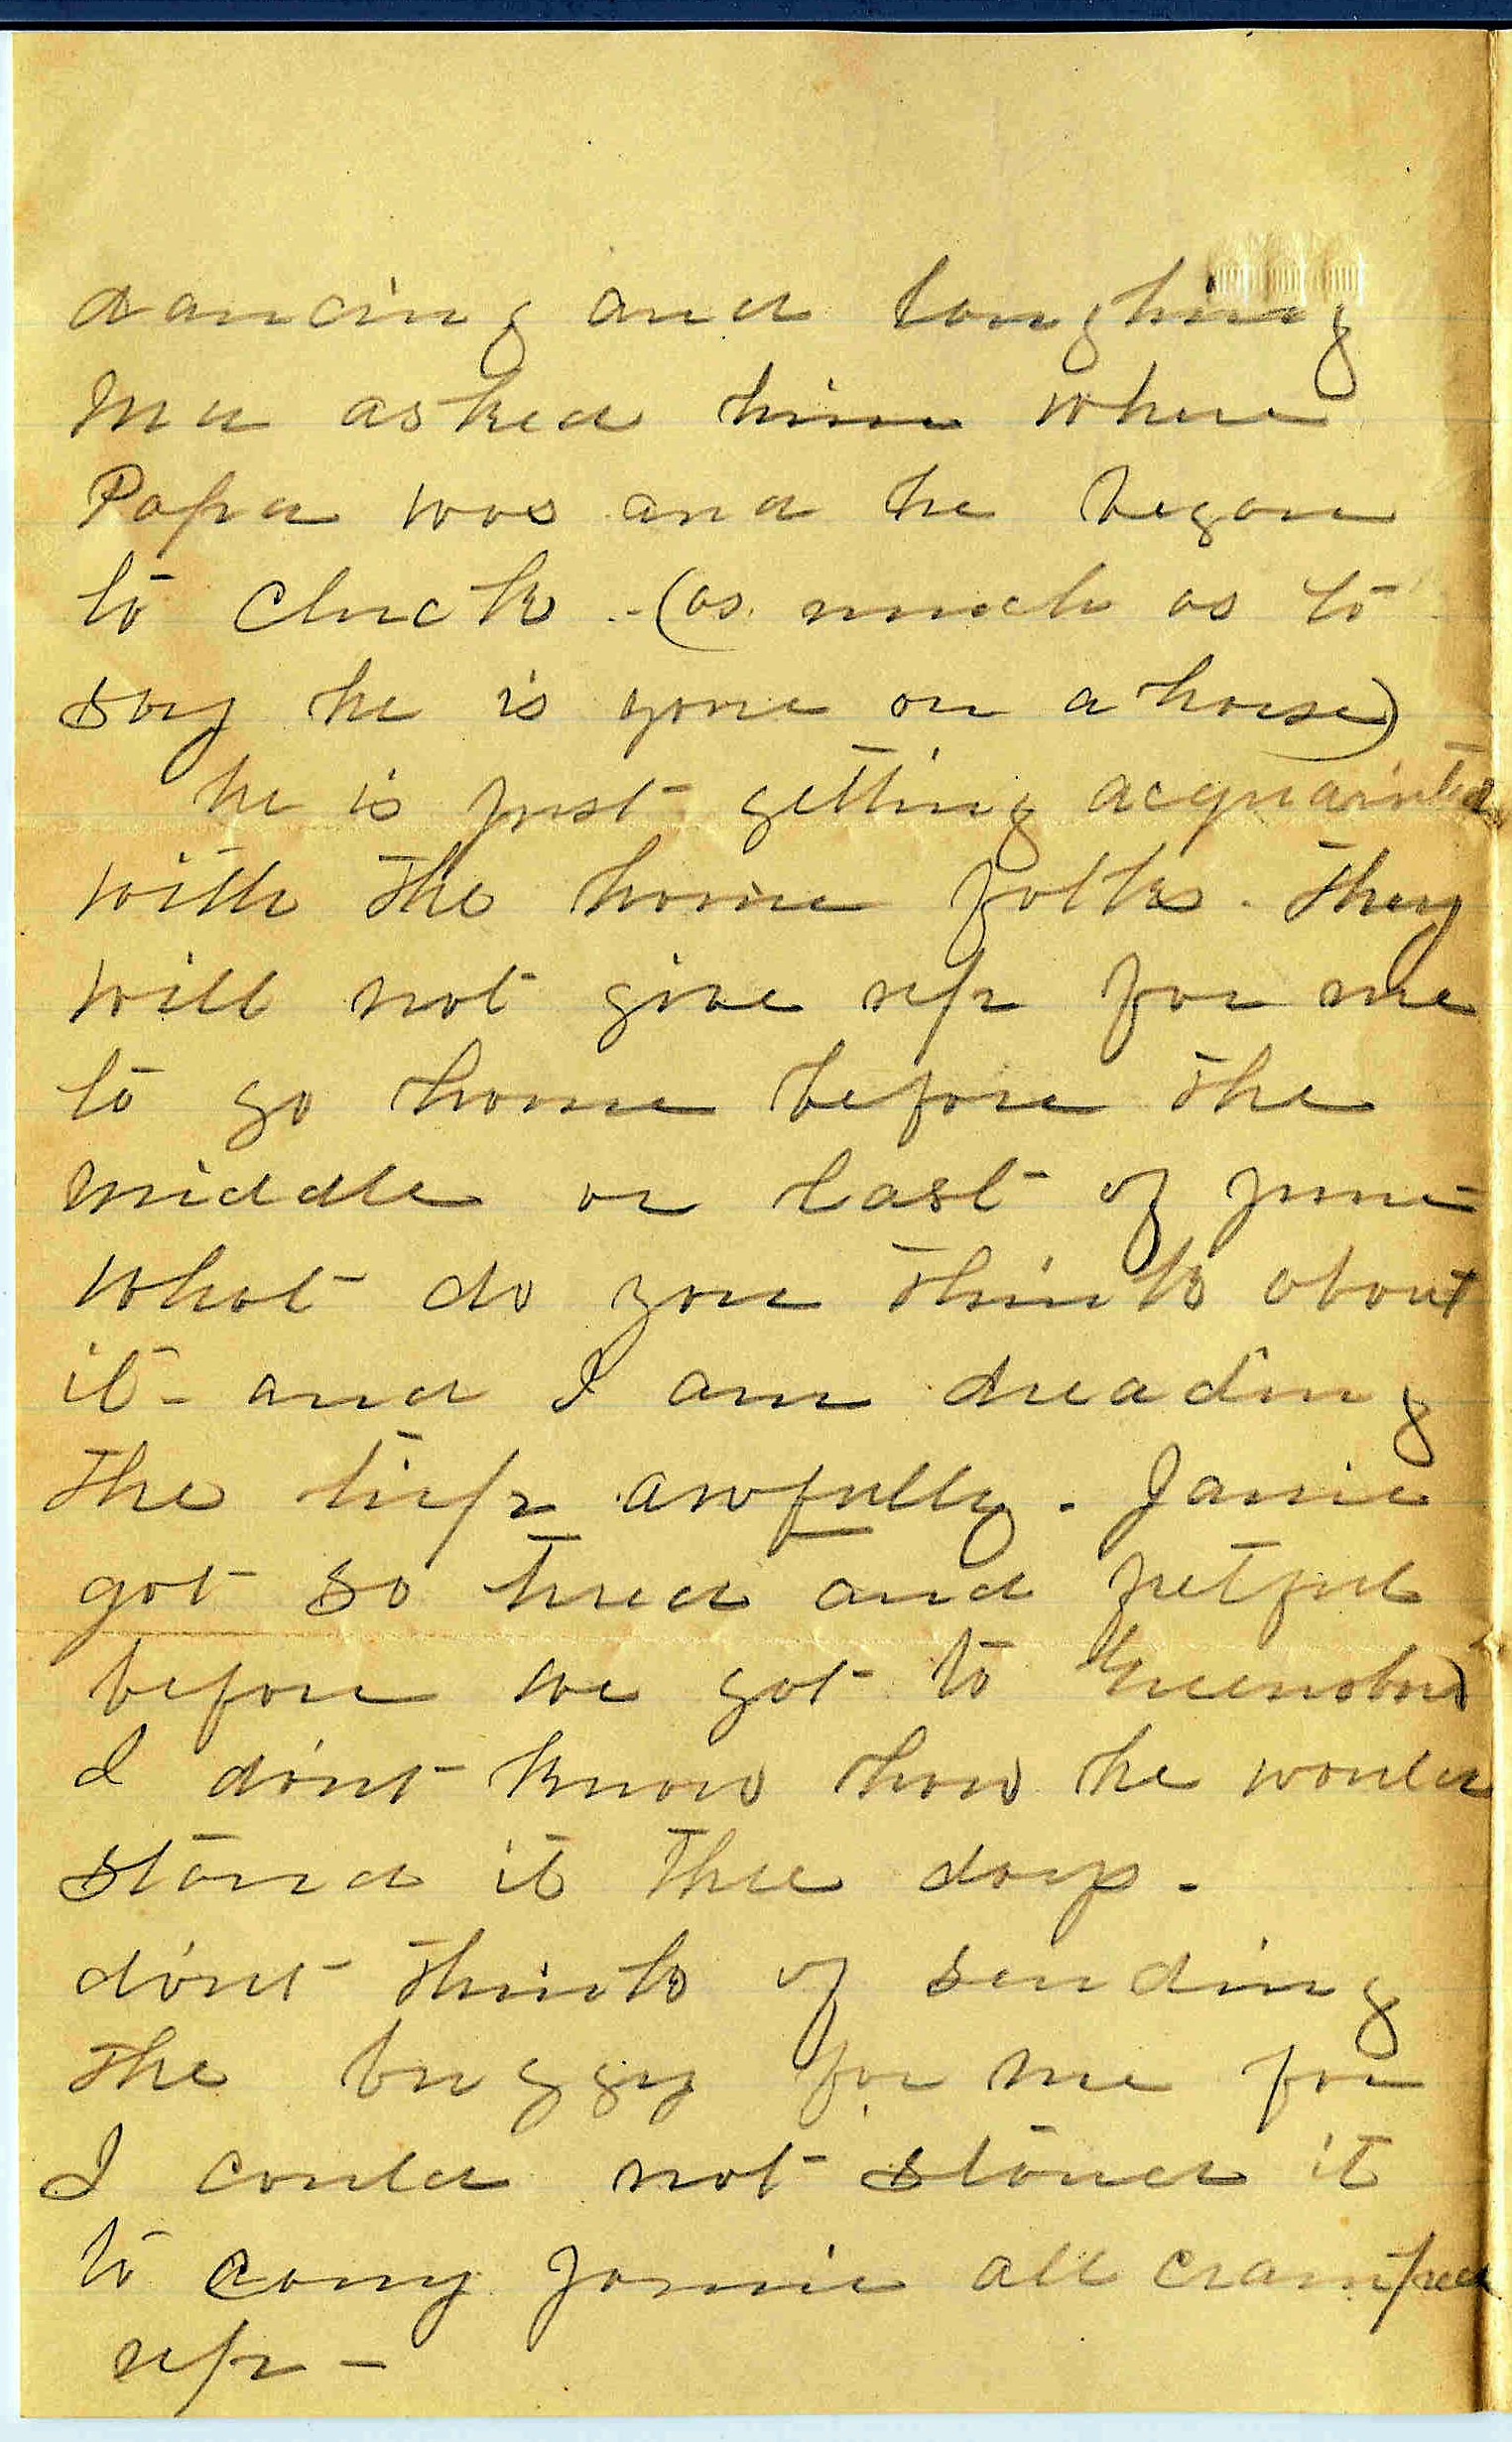 dancing and laughing
Ma asked him where
Papa was and he began
to cluck - (as much as to
say he is gone on a horse)
he is just getting acquainted
with the home folks. They
will not give up for me
to go home before the
middle or last of June -
what do you think about
it - and I am dreading
the trip awfully. Jamie
got so tired and fretful
before we got to Greensboro
I don't know how he would
stand it thre days.
don't think of sending
the buggy for me for
I could not stand it
to carry Jamie all cramped
up -